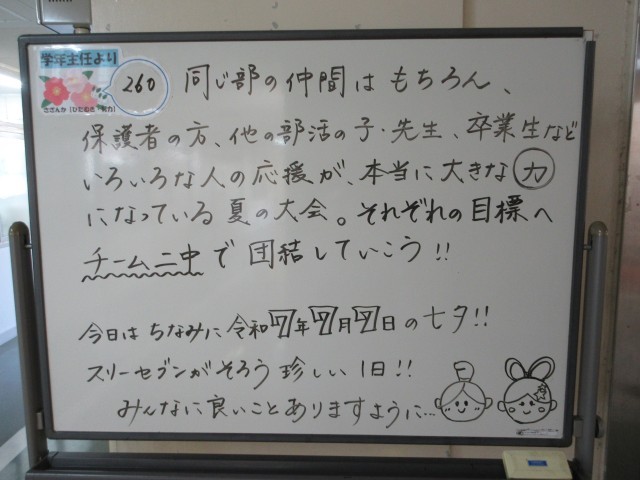 学年主任より
260
さざんか「ひたむき」「努力」
同じ部の仲間はもちろん、
保護者の方、他の部活の子・先生、卒業生など
いろいろな人の応援が、本当に大きな力
になっている夏の大会。それぞれの目標へ
チーム二中で団結していこう!!
今日はちなみに令和7年7月7日の七夕!!
スリーセブンがそろう珍しい1日!!
みんなに良いことありますように…